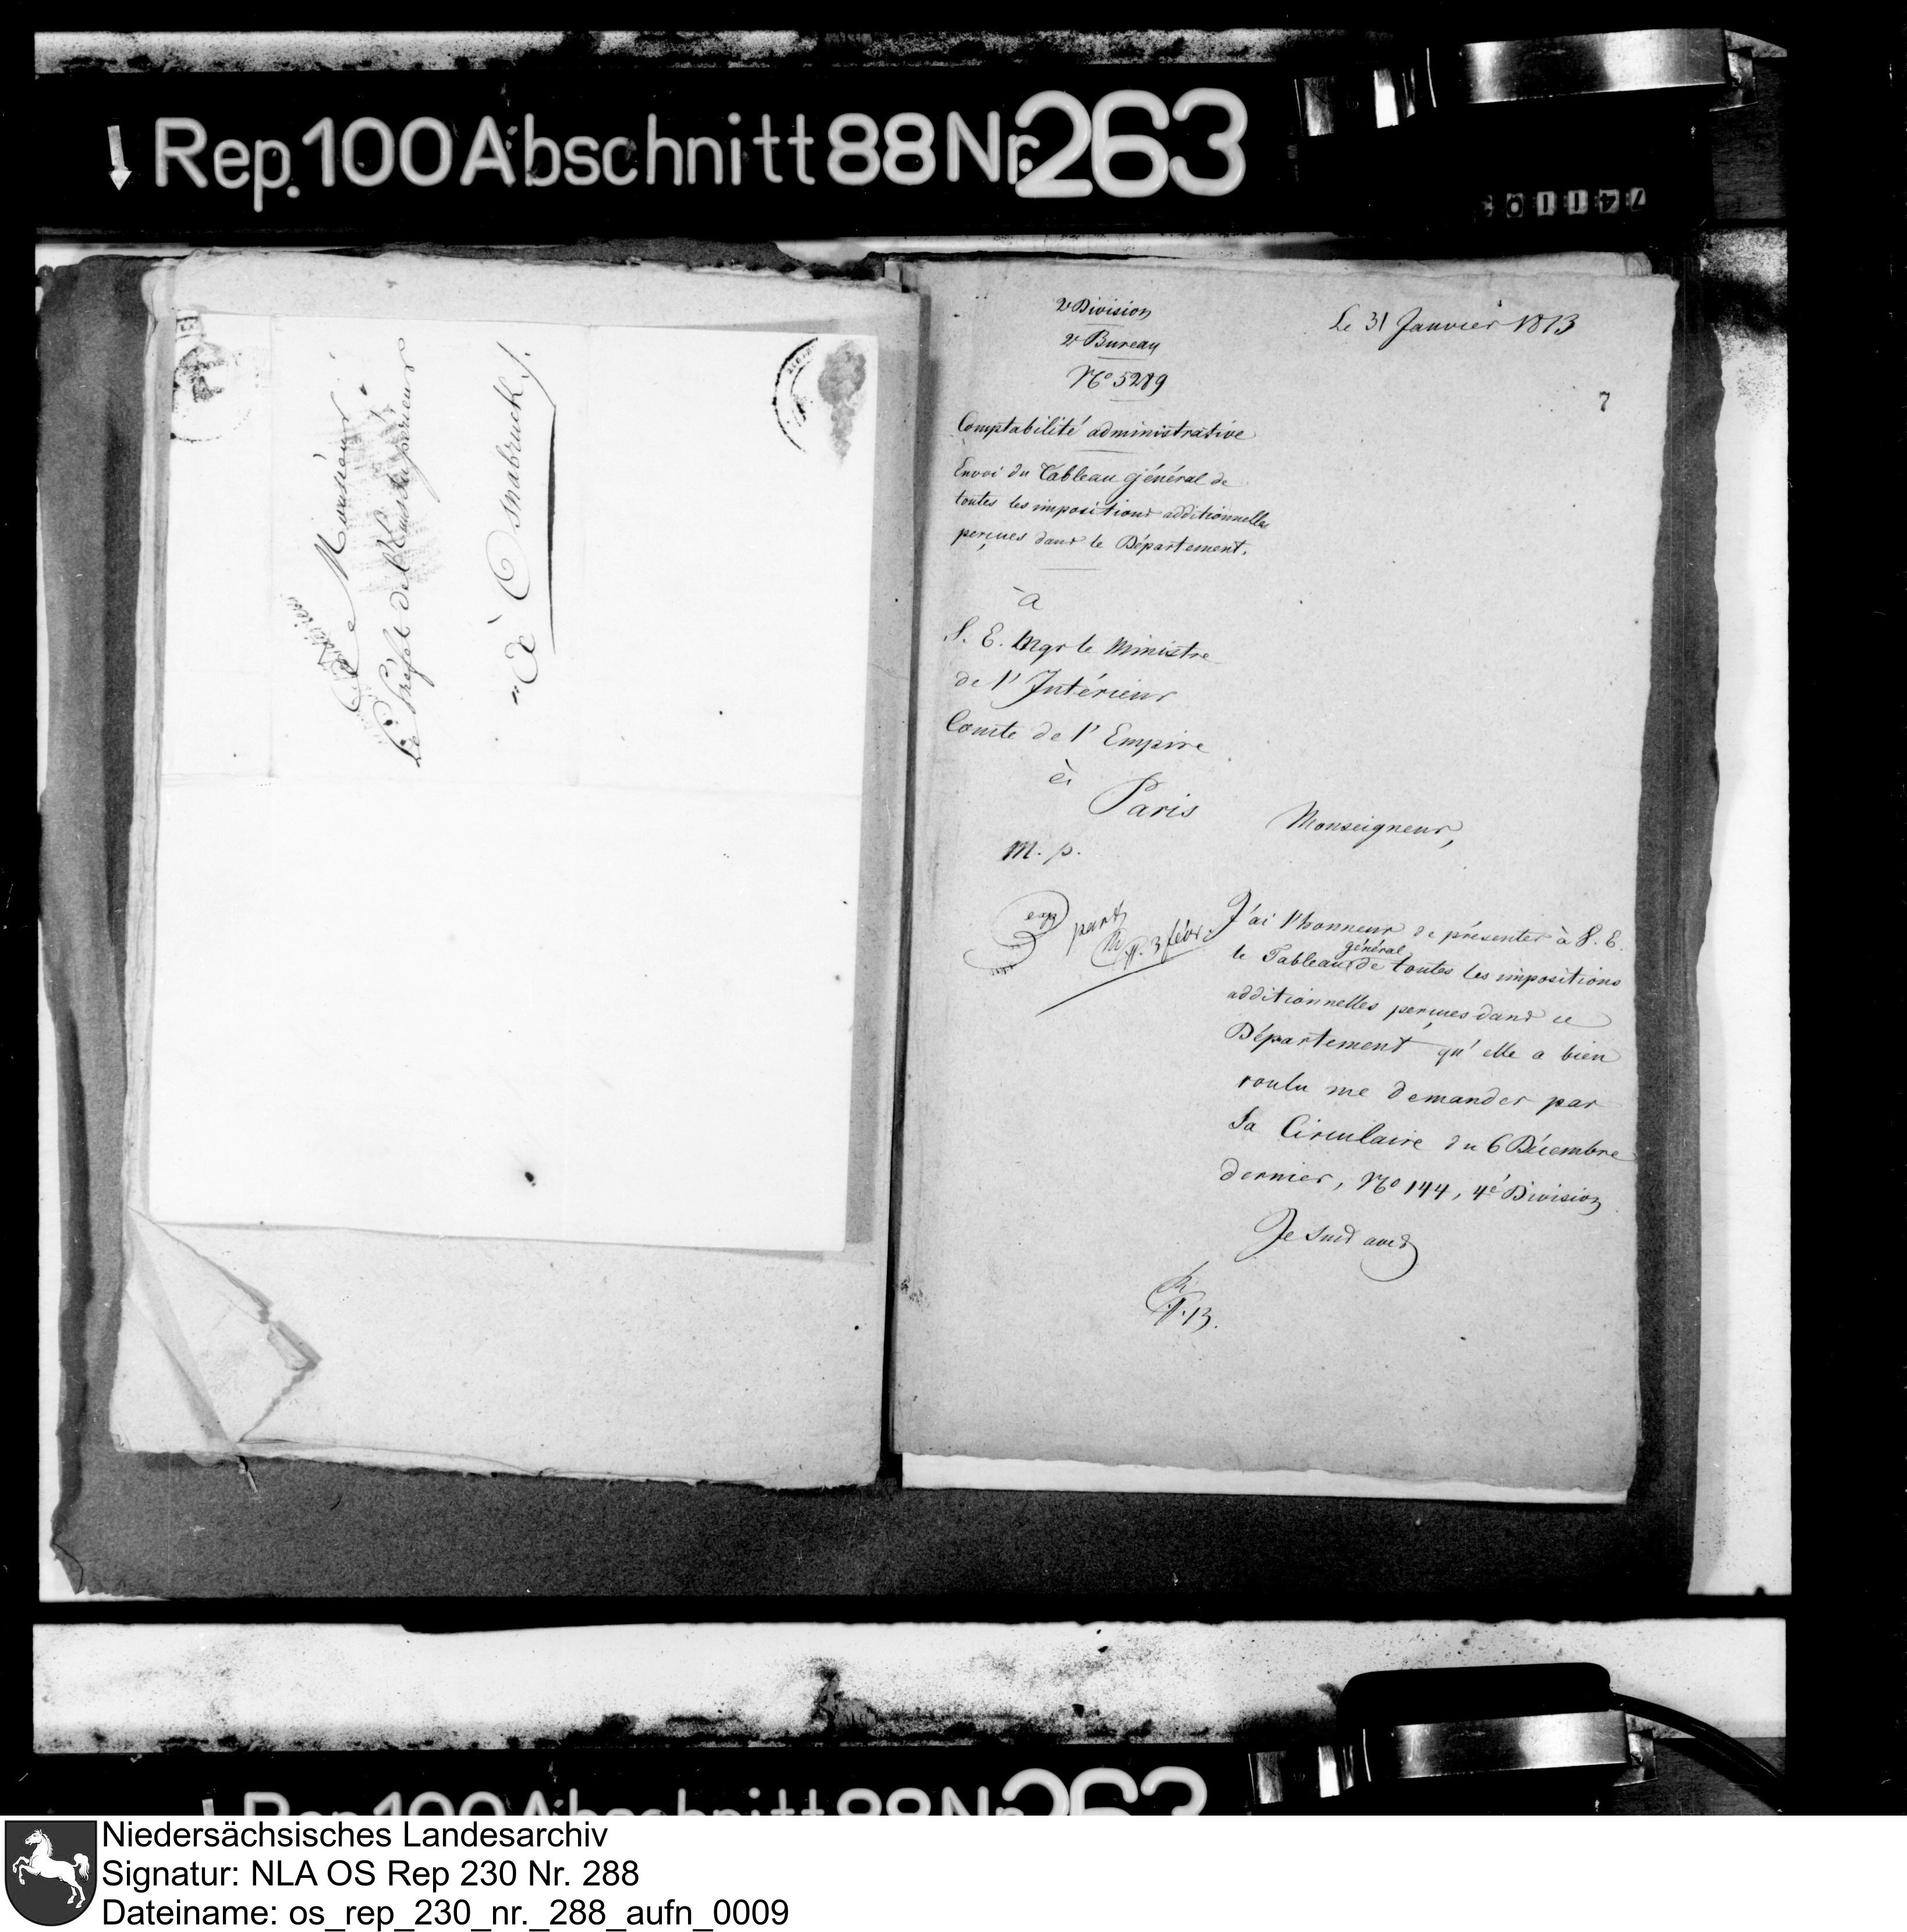 Rep. 100 Abschnitt 88 Nr. 263
A Monsieur
Le Préfet de l'Ems Supérieur
à Osnabruck
2e Division
2e Bureau
No 5289
Le 31 Janvier 1813
7
Comptabilité administrative
Envoi du Tableau général de
toutes les impositions additionnelles
perçues dans le Département.
à
S. E. Mgr le Ministre
de l'Intérieur
Comte de l'Empire
à
Paris
m. p.
Monseigneur,
exp
3 févr.
J'ai l'honneur de présenter à S. E.
le Tableau général de toutes les impositions
additionnelles perçues dans ce
Département qu'elle a bien
voulu me demander par
Sa Circulaire du 6 Décembre
dernier, No 144, 4e Division
Je suis avec
13.
Rep. 100 Abschnitt 88 Nr. 263
Niedersächsisches Landesarchiv
Signatur: NLA OS Rep 230 Nr. 288
Dateiname: os_rep_230_nr._288_aufn_0009